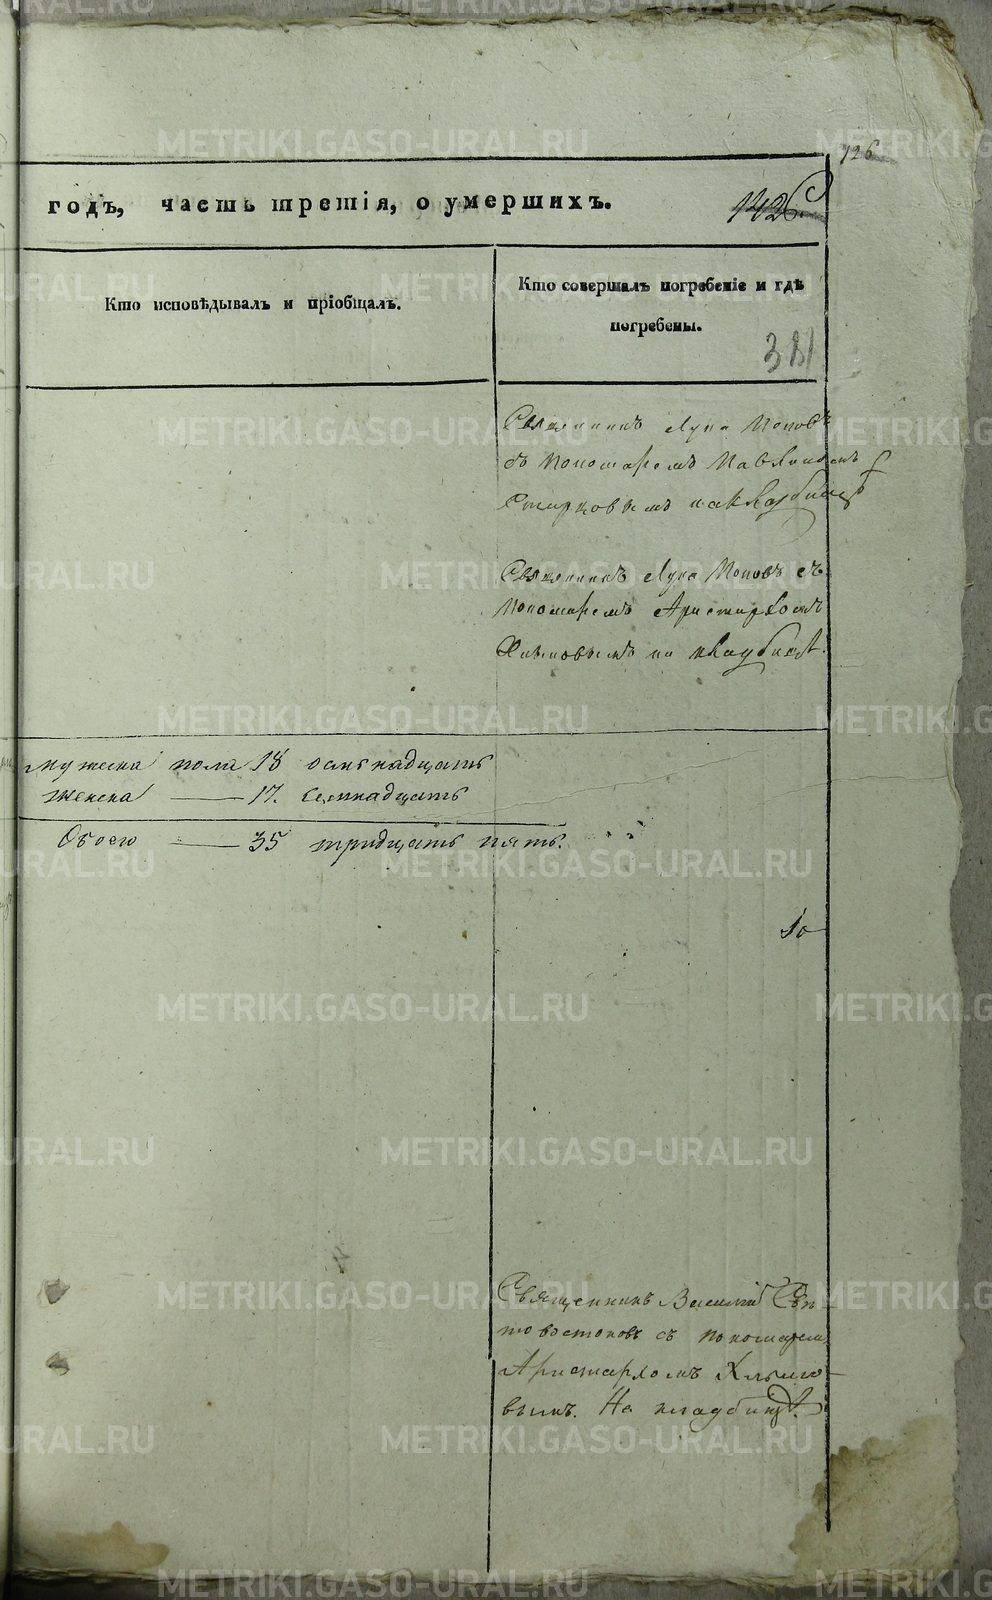 126
годъ, часть третія, о умершихъ.
142
Кто исповѣдывалъ и пріобщалъ.
Кто совершалъ погребеніе и гдѣ
погребены.
381
Священникъ Лука Поповъ
съ Пономаремъ
на кладбищѣ
Священникъ Лука Поповъ съ
Пономаремъ Аристархомъ
Хлыновымъ на кладбищѣ.
мужеска пола 18 осмьнадцать
женска — 17. семнадцать
Обоего — 35 тридцать пять.
10
Священникъ Василій Свѣ
товостоковъ съ пономаремъ
Аристархомъ Хлыно
вымъ. На кладбищѣ.
METRIKI.GASO-URAL.RU